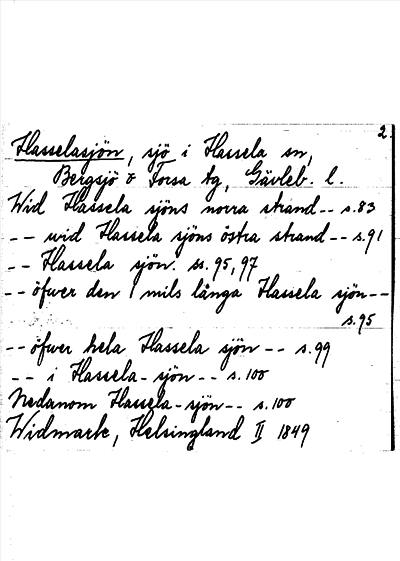 2.
Hasselasjön, sjö i Hassela sn,
Bergsjö & Forsa tg, Gävleb. l.
Wid Hassela sjöns norra strand -- s. 83
-- wid Hassela sjöns östra strand -- s. 91
-- Hassela sjön. ss. 95, 97
-- öfwer den 1 mils långa Hassela sjön --
s. 95
-- öfwer hela Hassela sjön -- s. 99
-- i Hassela-sjön -- s. 100
Nedanom Hassela-sjön -- s. 100
Widmark, Helsingland II 1849